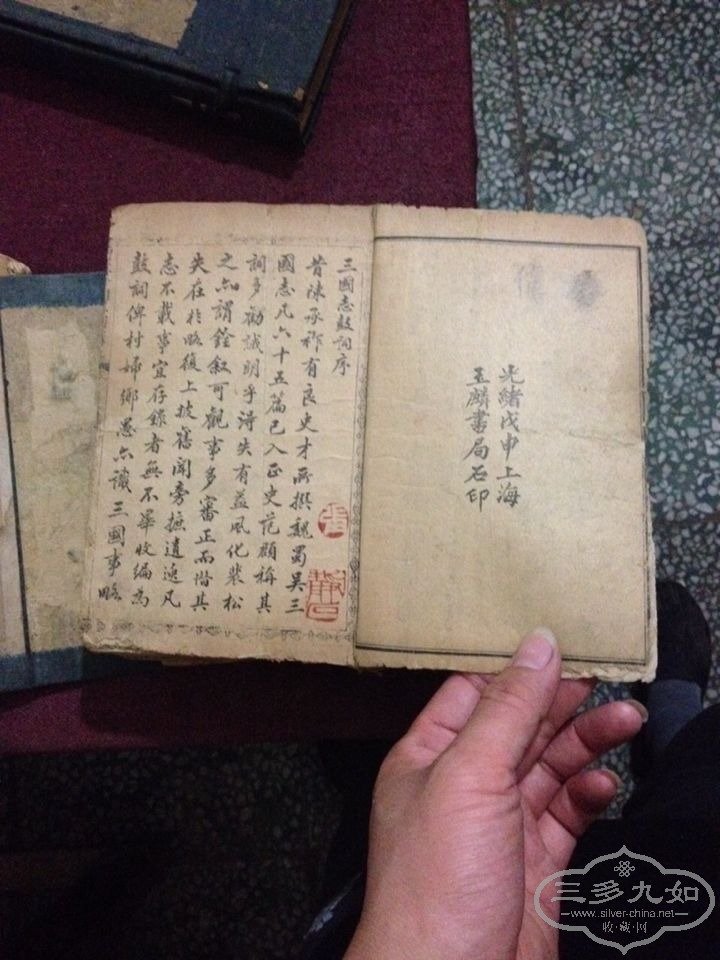 光緒戊申上海
玉麟書局石印
三國志鼓詞序
昔陳承祚有良史才所撰魏蜀吴三
國志凡六十五篇已入正史范頵稱其
詞多勸誡明乎淂失有益風化裴松
之亦謂銓叙可觀事多審正而惜其
失在於略復上披舊聞旁摭遺逸凡
志不載事宜存錄者無不畢收編為
鼓詞俾村婦鄉愚亦識三國事略
三多九如
www.silver-china.net
收·藏·网